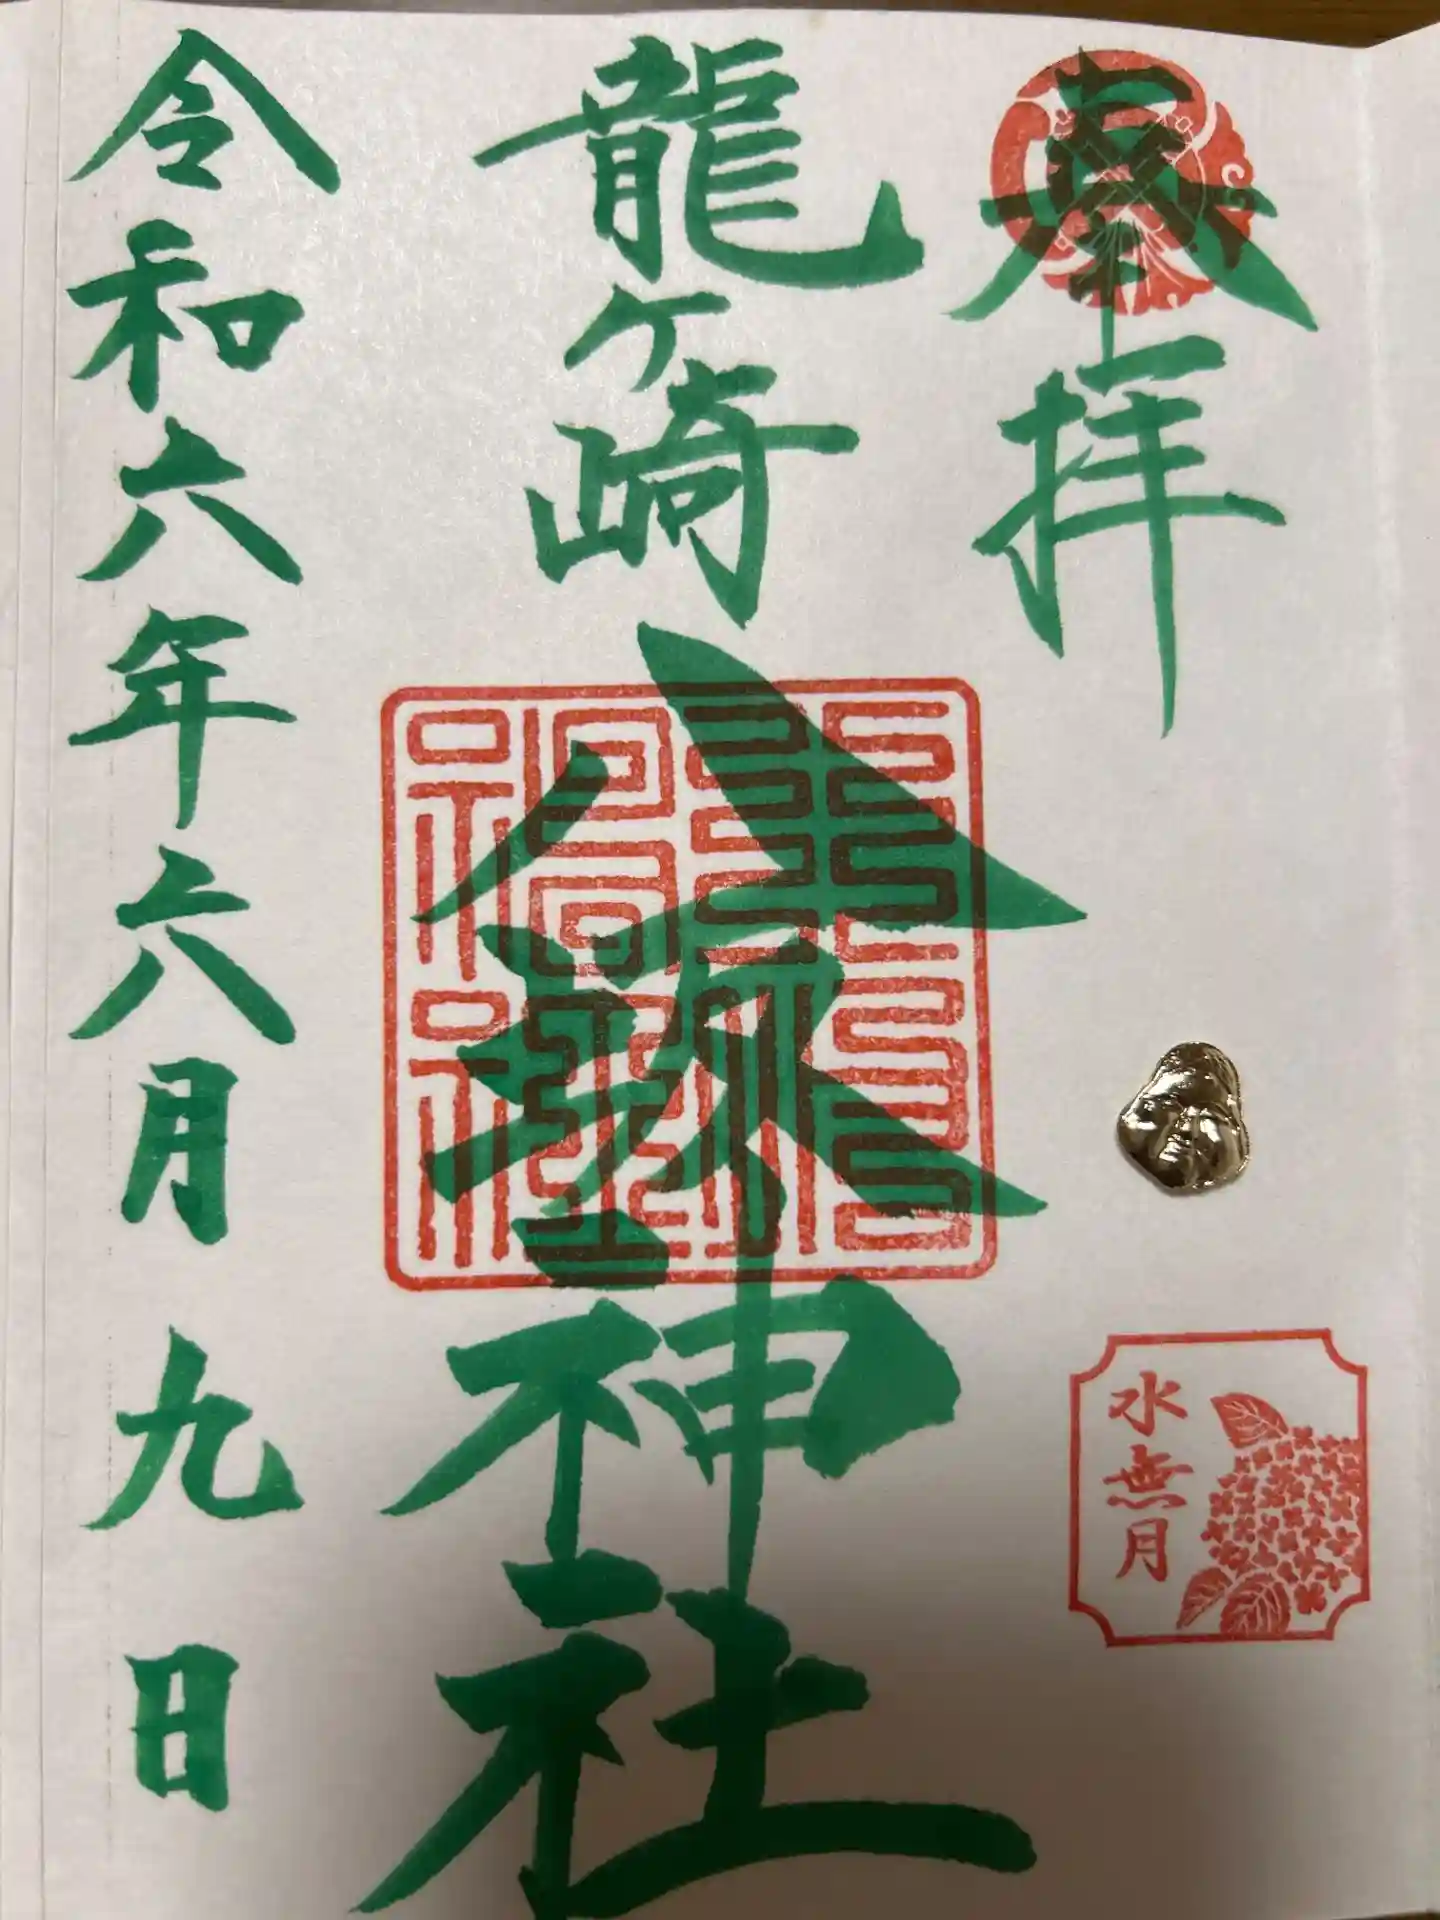 奉拝
水無月
龍ケ崎
八坂神社
令和六年六月九日